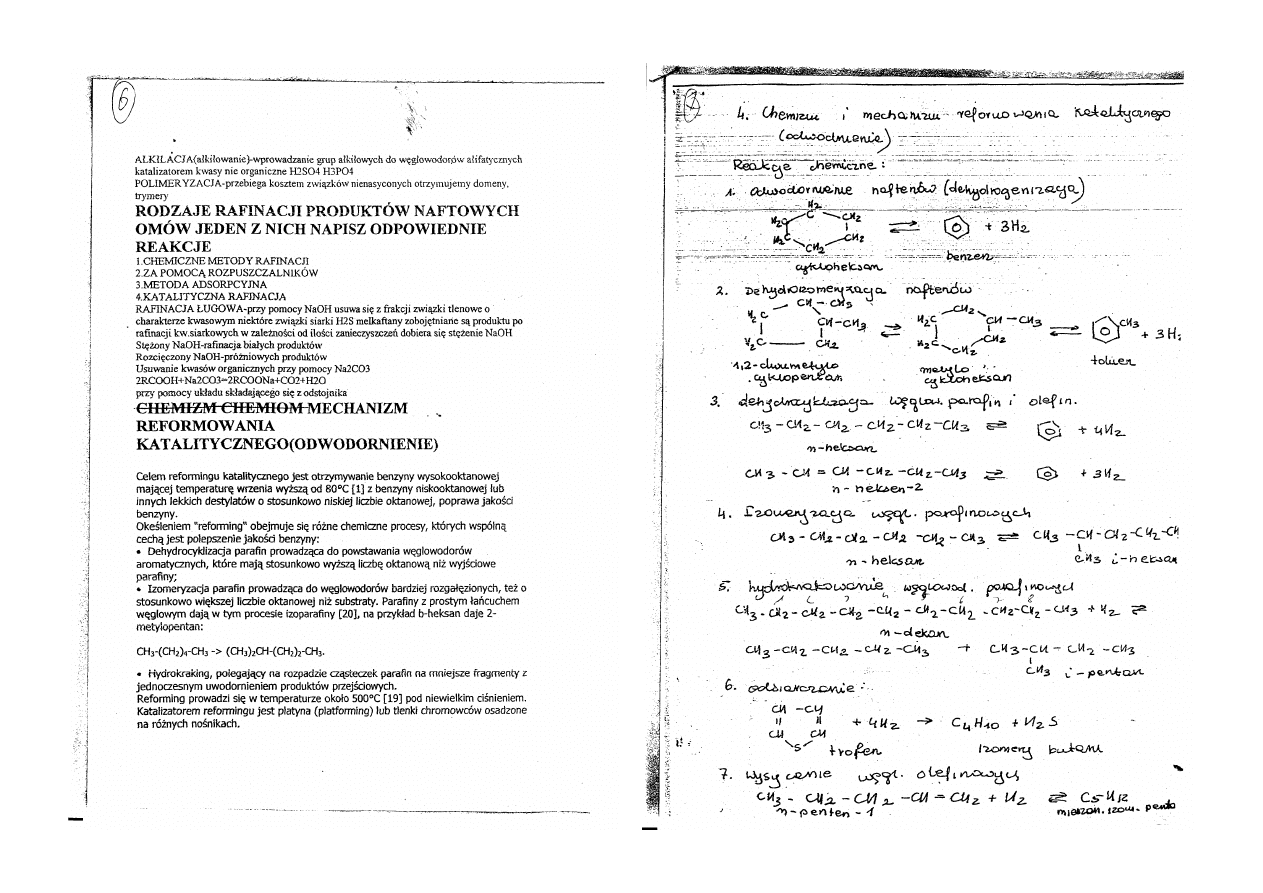 6
ALKILACJA(alkilowanie)-wprowadzanie grup alkilowych do węglowodorów alifatycznych
katalizatorem kwasy nie organiczne H2SO4 H3PO4
POLIMERYZACJA-przebiega kosztem związków nienasyconych otrzymujemy domeny,
trymery
RODZAJE RAFINACJI PRODUKTÓW NAFTOWYCH
OMÓW JEDEN Z NICH NAPISZ ODPOWIEDNIE
REAKCJE
1.CHEMICZNE METODY RAFINACJI
2.ZA POMOCĄ ROZPUSZCZALNIKÓW
3.METODA ADSORPCYJNA
4.KATALITYCZNA RAFINACJA
RAFINACJA ŁUGOWA-przy pomocy NaOH usuwa się z frakcji związki tlenowe o
charakterze kwasowym niektóre związki siarki H2S melkaftany zobojętniane są produktu po
rafinacji kw.siarkowych w zależności od ilości zanieczyszczeń dobiera się stężenie NaOH
Stężony NaOH-rafinacja białych produktów
Rozcięczony NaOH-próżniowych produktów
Usuwanie kwasów organicznych przy pomocy Na2CO3
2RCOOH+Na2CO3=2RCOONa+CO2+H2O
przy pomocy układu składającego się z odstojnika
CHEMIZM CHEMIOM MECHANIZM
REFORMOWANIA
KATALITYCZNEGO(ODWODORNIENIE)
Celem reformingu katalitycznego jest otrzymywanie benzyny wysokooktanowej
mającej temperaturę wrzenia wyższą od 80°C [1] z benzyny niskooktanowej lub
innych lekkich destylatów o stosunkowo niskiej liczbie oktanowej, poprawa jakości
benzyny.
Okeśleniem "reforming" obejmuje się różne chemiczne procesy, których wspólną
cechą jest polepszenie jakości benzyny:
• Dehydrocyklizacja parafin prowadząca do powstawania węglowodorów
aromatycznych, które mają stosunkowo wyższą liczbę oktanową niż wyjściowe
parafiny;
• Izomeryzacja parafin prowadząca do węglowodorów bardziej rozgałęzionych, też o
stosunkowo większej liczbie oktanowej niż substraty. Parafiny z prostym łańcuchem
węglowym dają w tym procesie izoparafiny [20], na przykład b-heksan daje 2-
metylopentan:
CH₃-(CH₂)₄-CH₃ -> (CH₃)₂CH-(CH₂)₂-CH₃.
• Hydrokraking, polegający na rozpadzie cząsteczek parafin na mniejsze fragmenty z
jednoczesnym uwodornieniem produktów przejściowych.
Reforming prowadzi się w temperaturze około 500°C [19] pod niewielkim ciśnieniem.
Katalizatorem reformingu jest platyna (platforming) lub tlenki chromowców osadzone
na różnych nośnikach.
4. Chemizm i mechanizm reformowania katalitycznego
(odwodnienie)
Reakcje chemiczne:
1. odwodornienie naftenów (dehydrogenizacja)
H2
H2C C CH2
H2C CH2 CH2 ⇌ + 3H2
cykloheksan benzen
2. Dehydroizomeryzacja naftenów
CH - CH3 CH2
H2C CH-CH3 ⇌ H2C CH - CH3 ⇌ CH3 + 3H2
H2C CH2 H2C CH2 CH2
1,2-dwumetylo metylo toluen
cyklopentan cykloheksan
3. dehydrocyklizacja węglow. parafin i olefin.
CH3 - CH2 - CH2 - CH2 - CH2 - CH3 ⇌ + 4H2
n-heksan
CH3 - CH = CH - CH2 - CH2 - CH3 ⇌ + 3H2
n - heksen-2
4. Izomeryzacja węgl. parafinowych
CH3 - CH2 - CH2 - CH2 - CH2 - CH3 ⇌ CH3 - CH - CH2 - CH2 - CH
n - heksan CH3 i-heksan
5. hydrokrakowanie węglowod. parafinowych
CH3 - CH2 - CH2 - CH2 - CH2 - CH2 - CH2 - CH2 - CH2 - CH3 + H2 ⇌
n - dekan
CH3 - CH2 - CH2 - CH2 - CH3 + CH3 - CH - CH2 - CH3
CH3 i - pentan
6. odsiarczanie:
CH - CH
CH CH + 4H2 → C4H10 + H2S
S tiofen Izomery butanu
7. Wysycenie węgl. olefinowych
CH3 - CH2 - CH2 - CH = CH2 + H2 ⇌ C5H12
n-penten - 1 mieszan. izom. penta